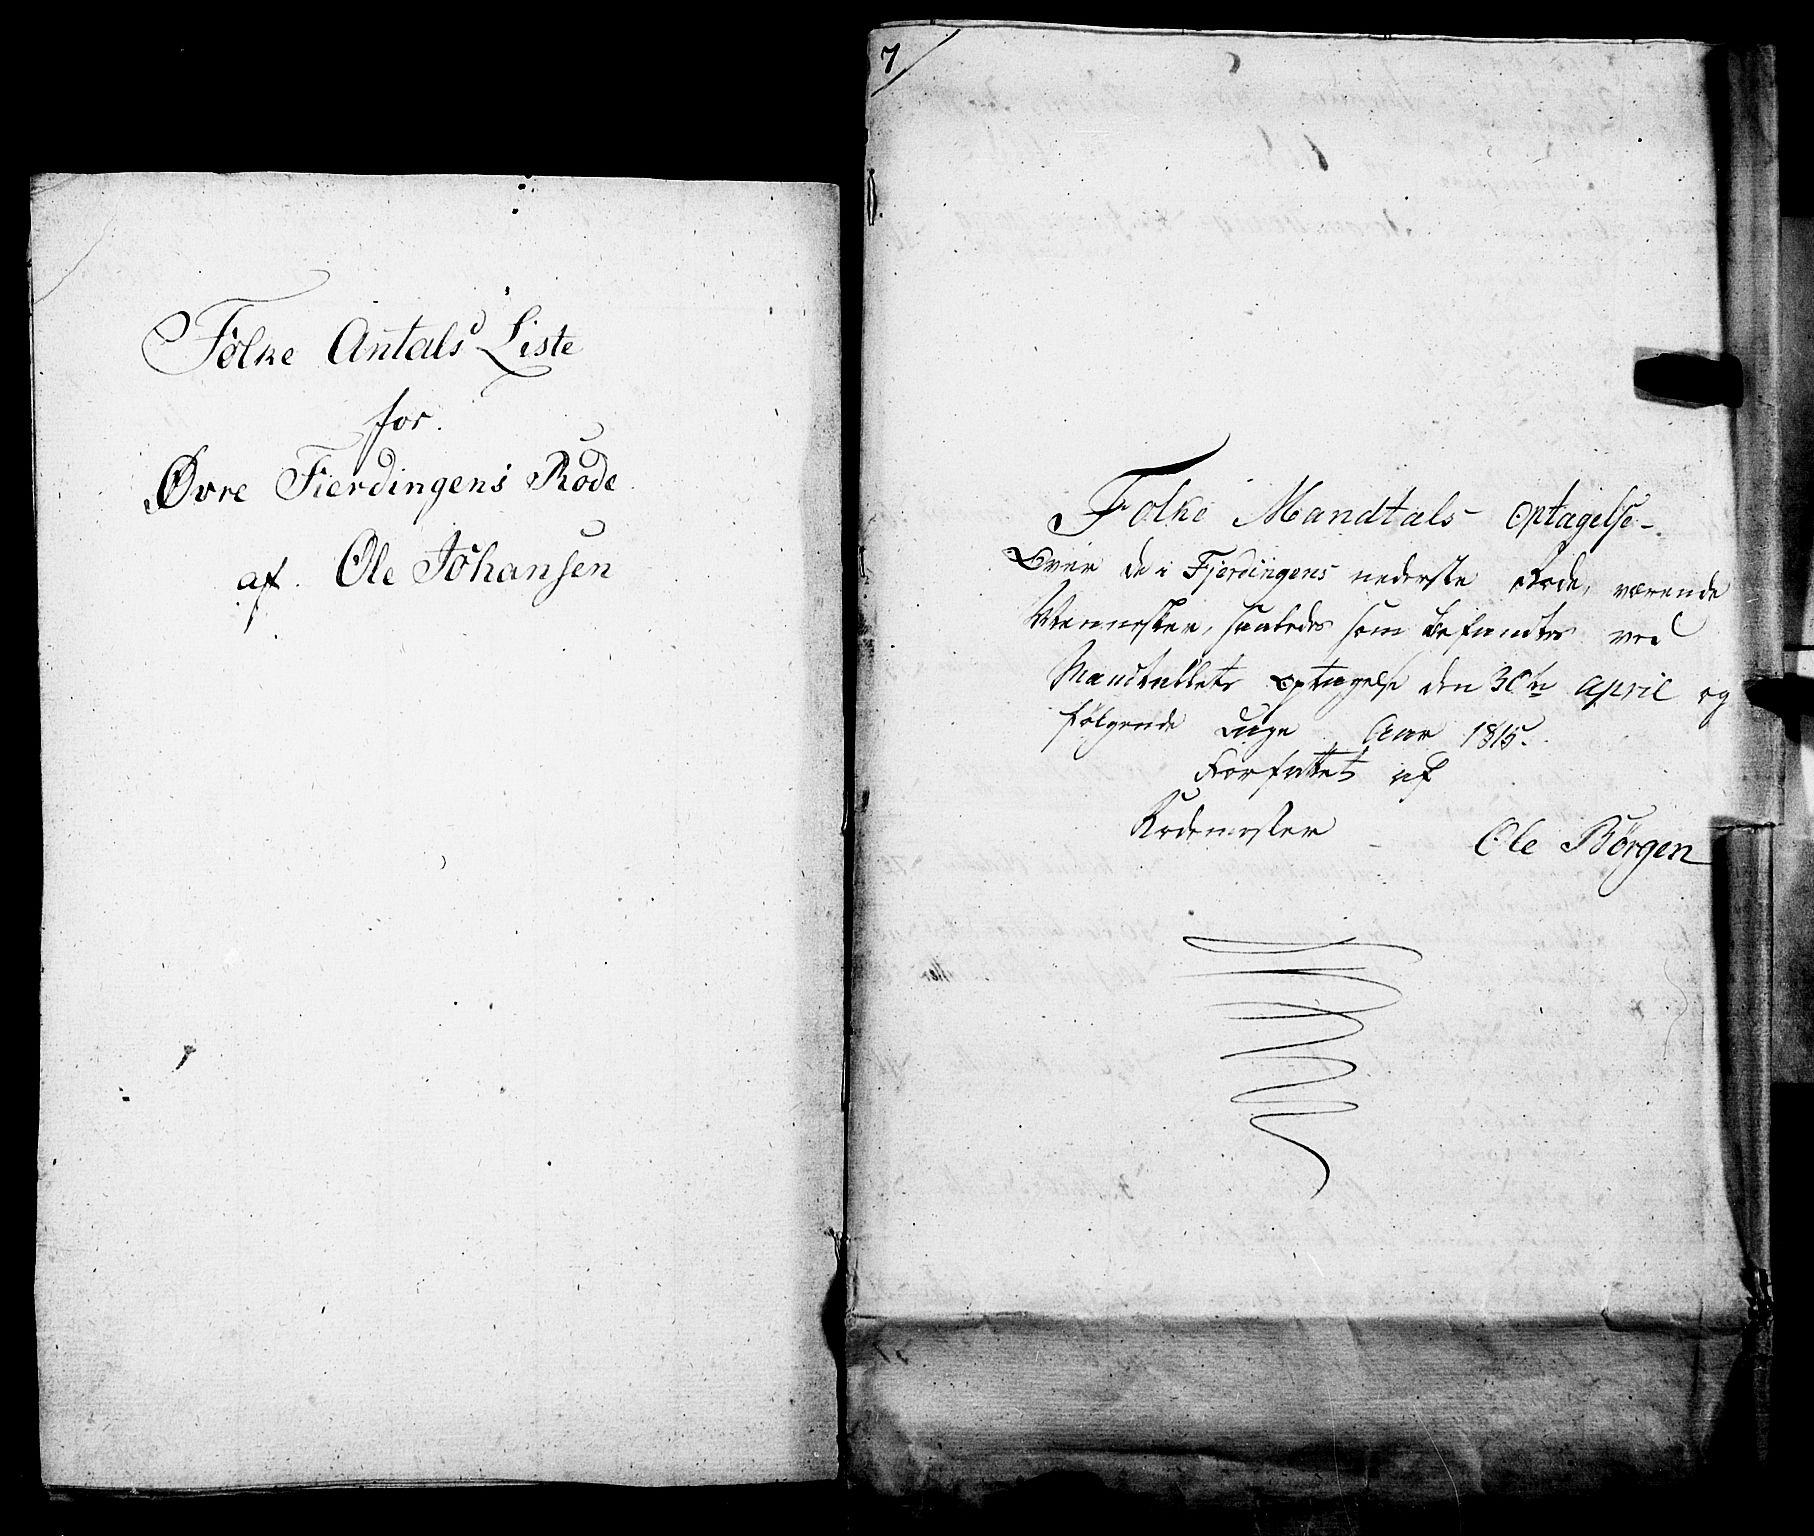 Folke Antals Liste
for.
Øvre Fierdingens Rode
af. Ole Johansen
7
Folke Mandtals Optagelse
Over de i Fjerdingens nederste Rode, værende
Mennesker, saaledes som befandtes ved
Mandtallets Optagelse den 30te April og
følgende Dage Aar 1815.
Forfattet af
Rodemester Ole Börgen